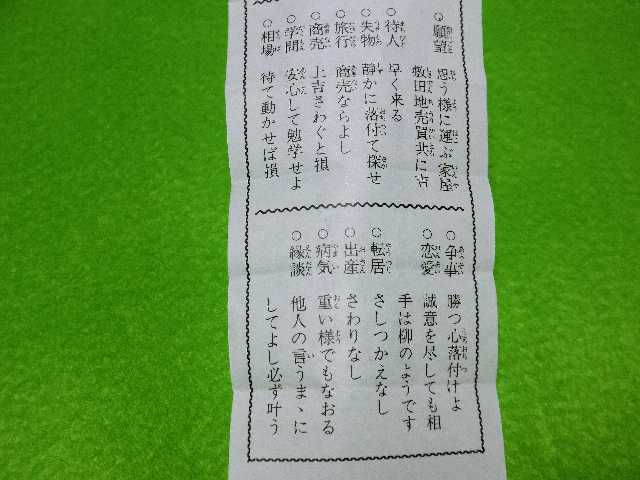 ○願望 思う様に運ぶ家屋
敷田地売買共に吉
○待人 早く来る
○失物 静かに落付て探せ
○旅行 商売ならよし
○商売 上吉さわぐと損
○学問 安心して勉学せよ
○相場 待て動かせば損
○争事 勝つ心落付けよ
○恋愛 誠意を尽しても相
手は柳のようです
○転居 さしつかえなし
○出産 さわりなし
○病気 重い様でもなおる
○縁談 他人の言うまゝに
してよし必ず叶う